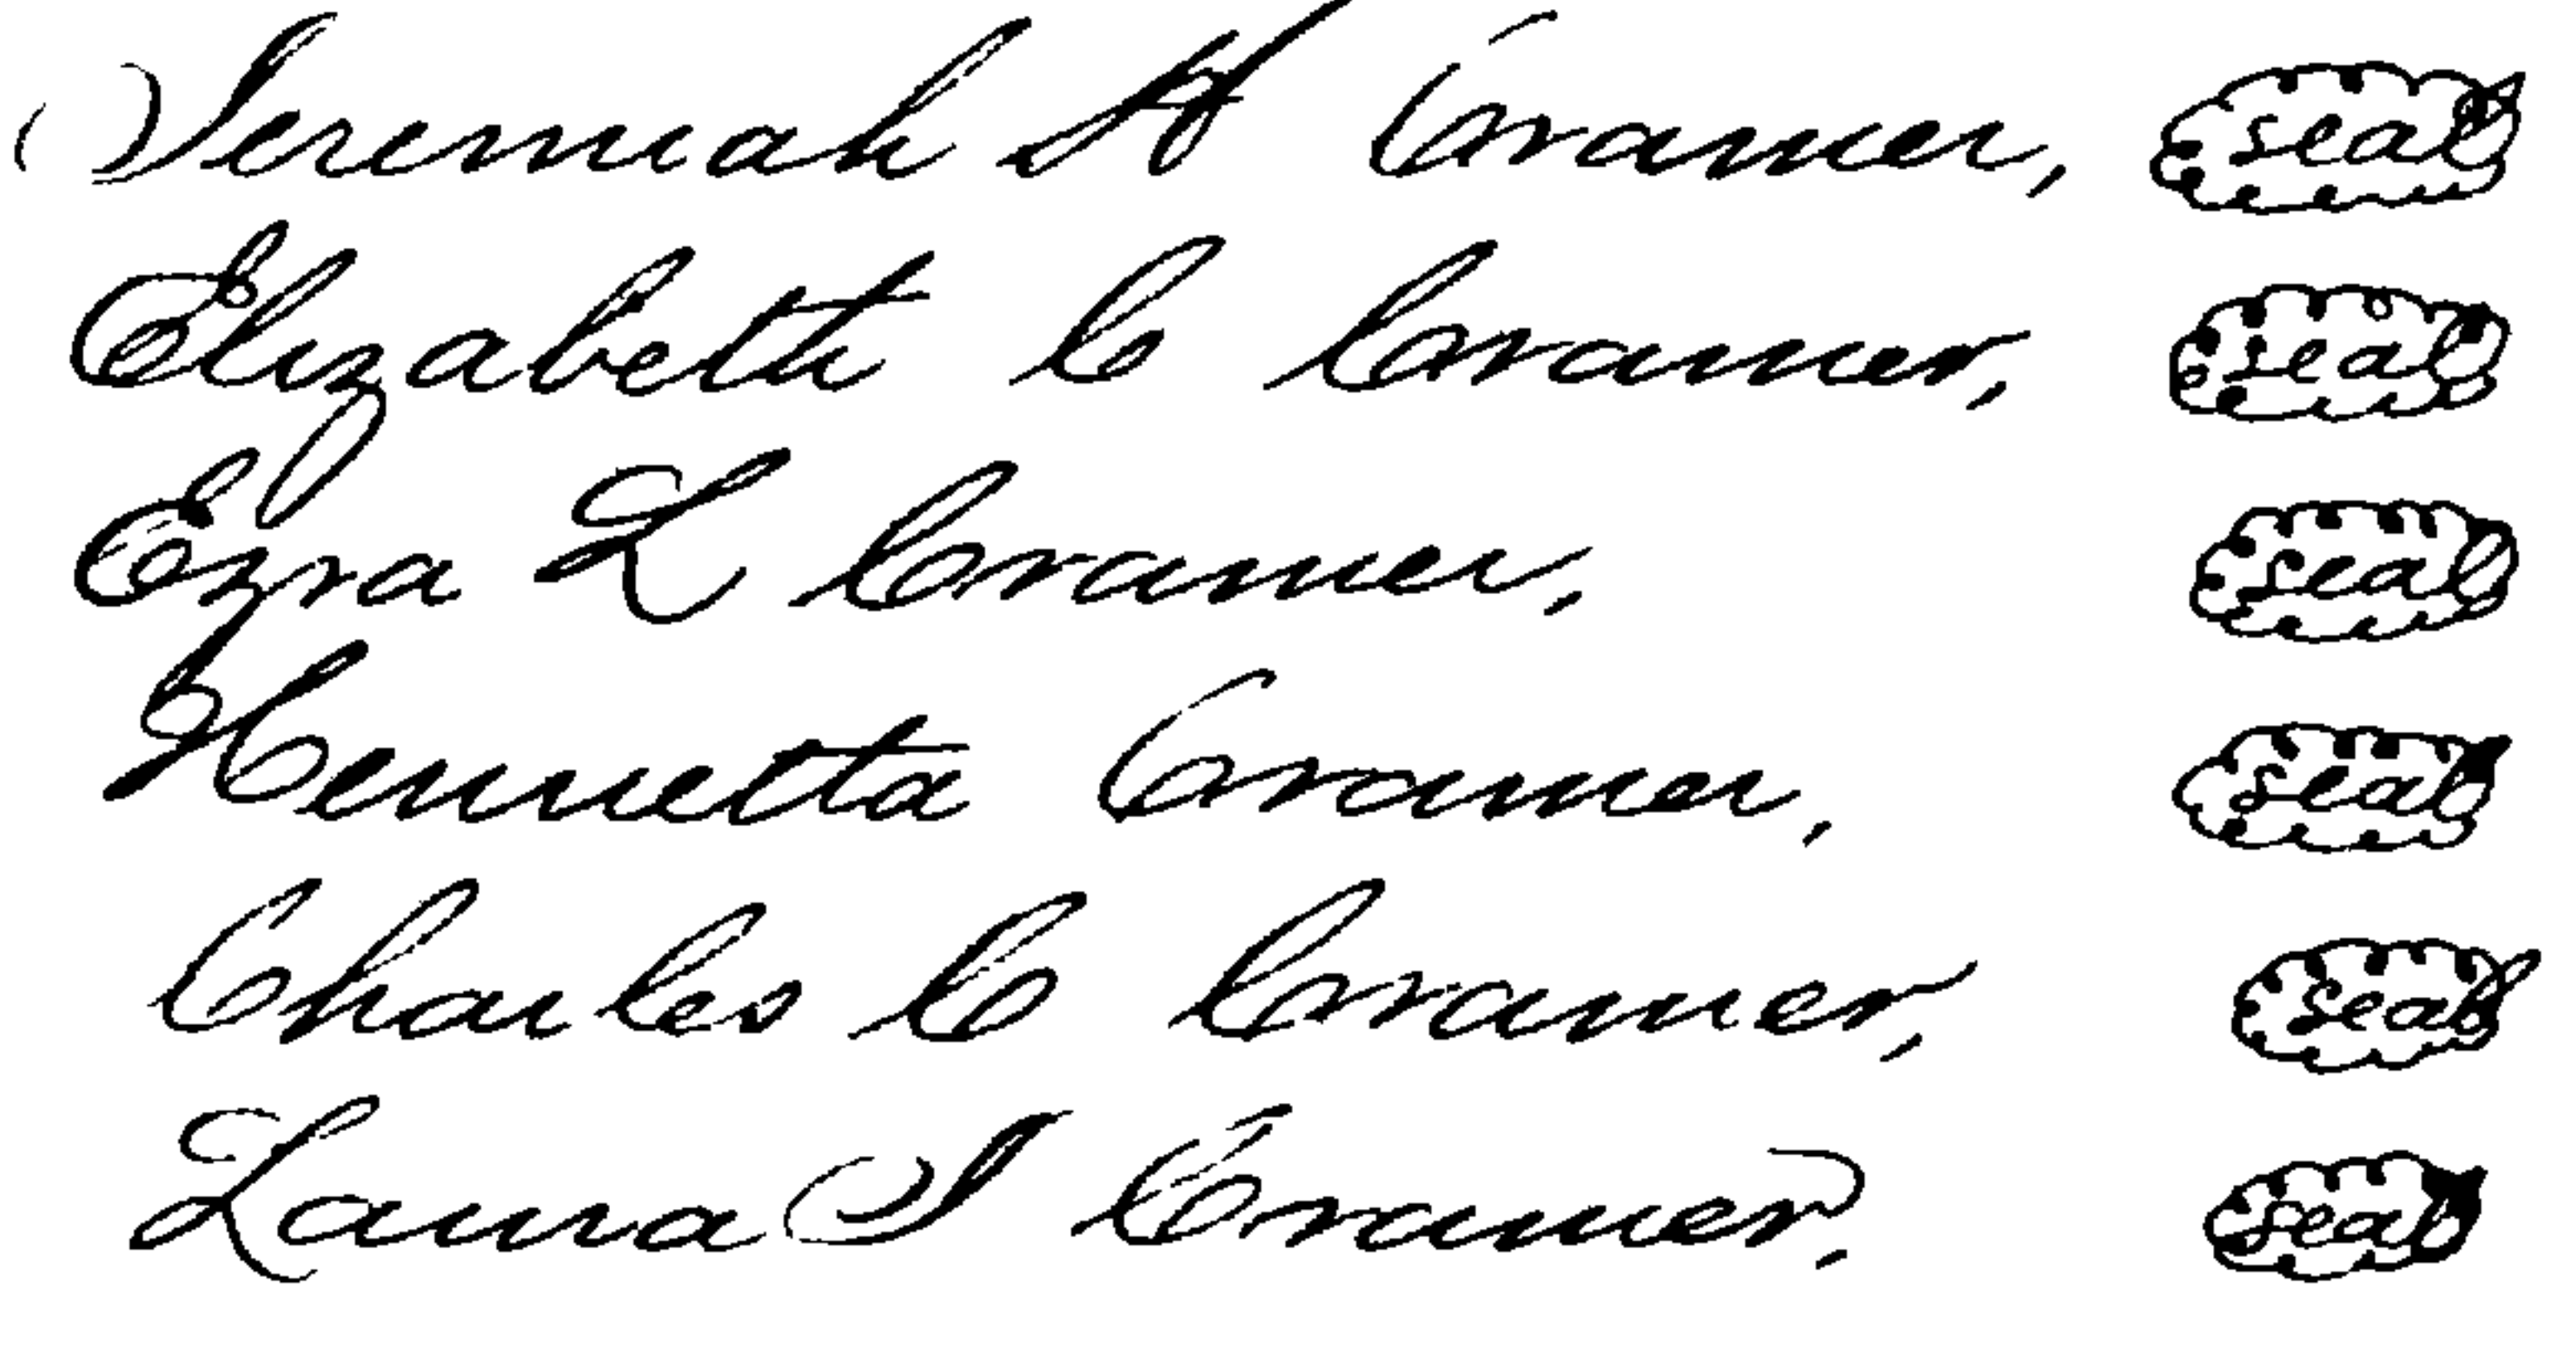 Jeremiah H Cramer, seal
Elizabeth C Cramer, seal
Ezra L Cramer, seal
Henrietta Cramer, seal
Charles C Cramer, seal
Laura J Cramer, seal